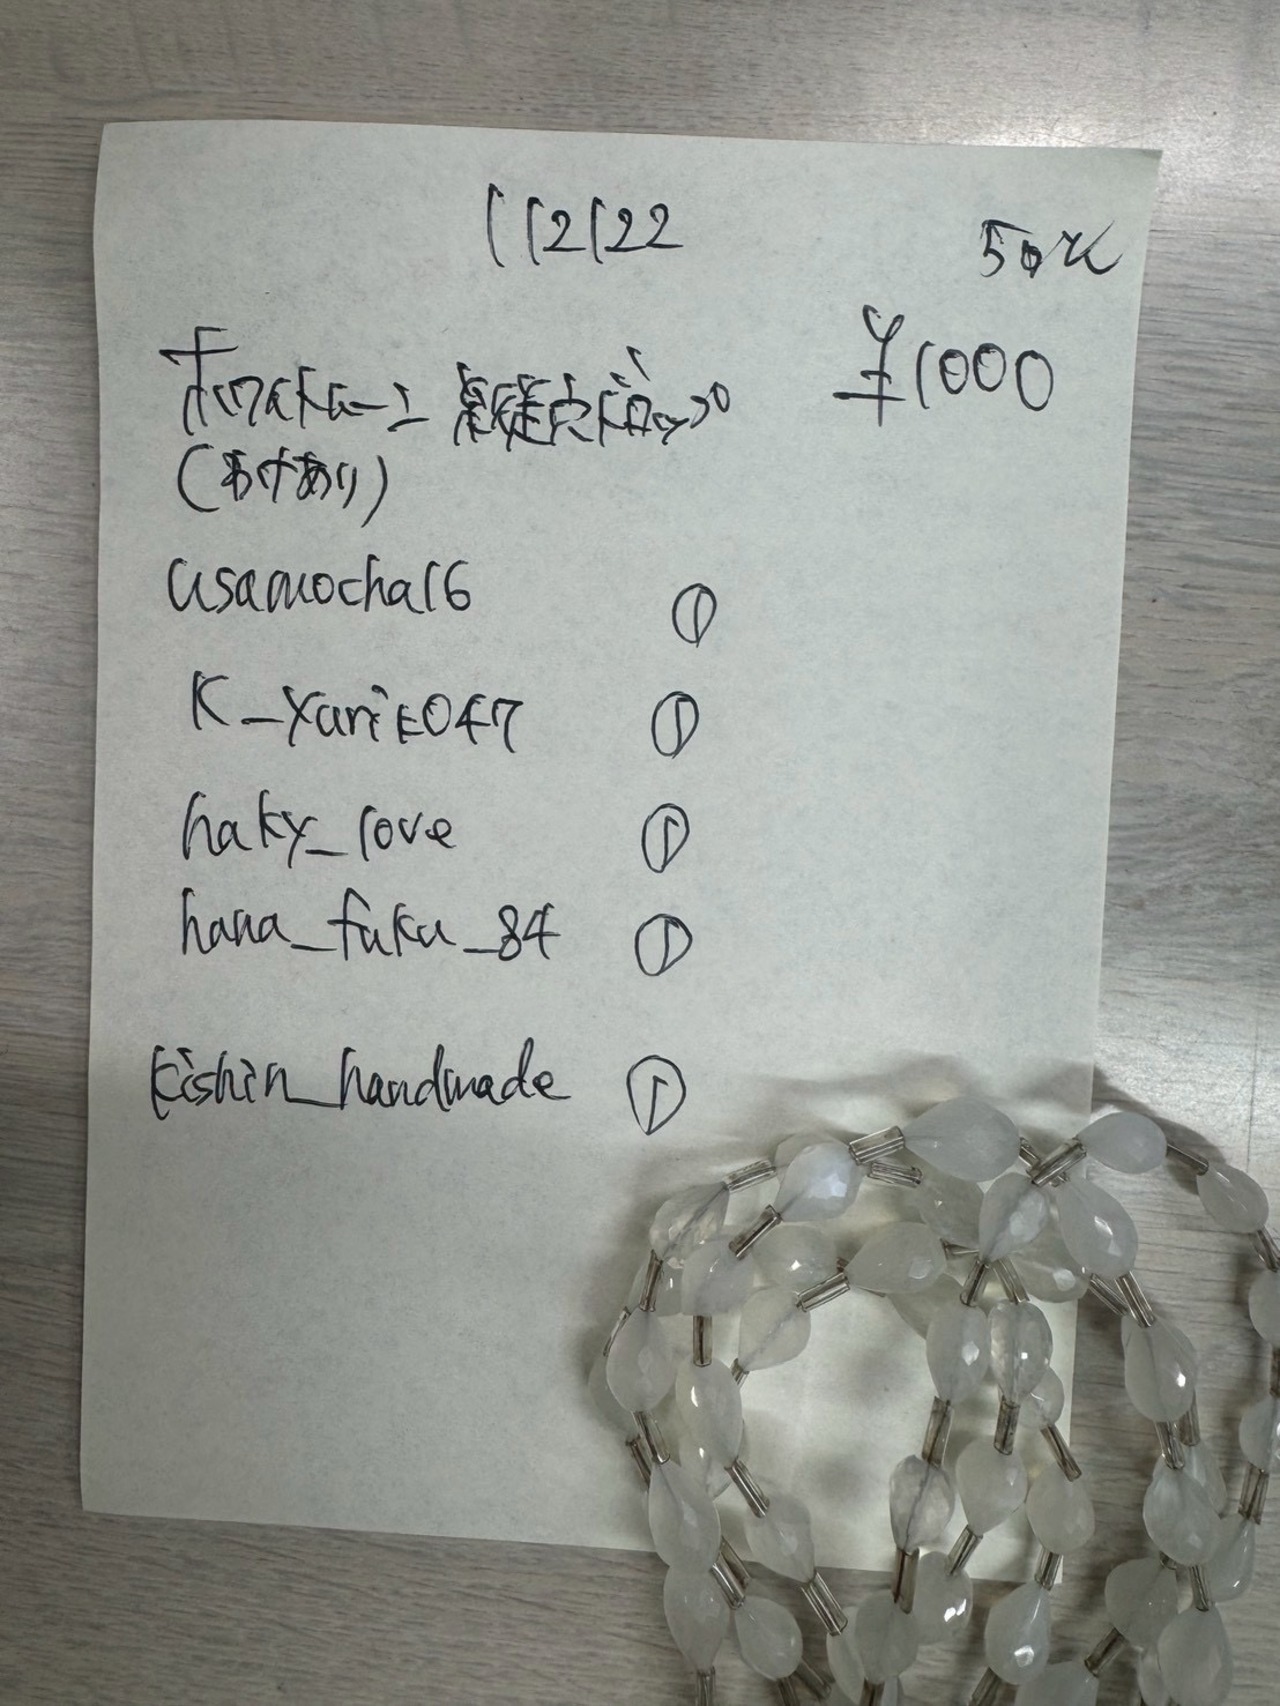 112122
50x
ホワイトムーン 縦穴ドロップ ¥1000
(わけあり)
usamocha16 ①
K_yarik047 ①
haky_love ①
hana_fuku_84 ①
kishin_handmade ①